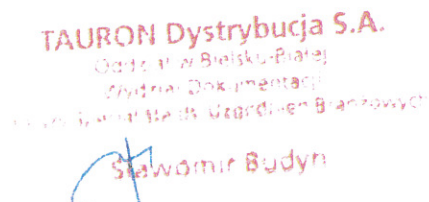 TAURON Dystrybucja S.A.
Oddział w Bielsku-Białej
Wydział Dokumentacji
Specjalista ds. Uzgodnień Branżowych
Sławomir Budyn